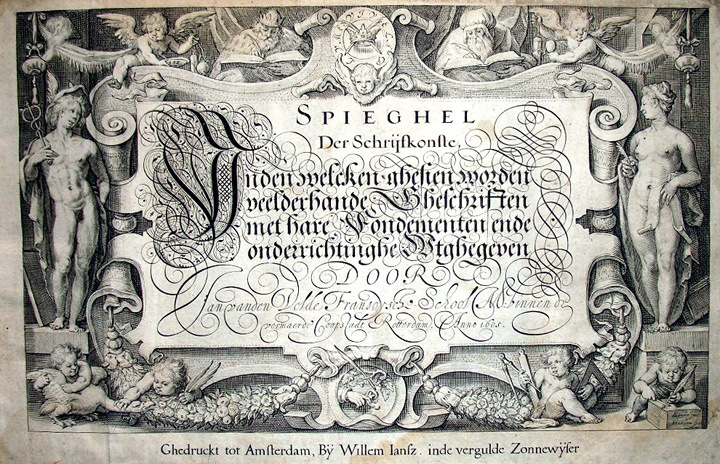 SPIEGHEL
Der Schrijfkonste,
Inden welcken ghesien worden
veelderhande Gheschriften
met hare Fondementen ende
onderrichtinghe Wtghegeven
DOOR
Jan vanden Velde Fransoysche School Mr. binnen de
vermaerde Coopstadt Rotterdam. Anno 1605.
Ghedruckt tot Amsterdam, Bÿ Willem Iansz. inde vergulde Zonnewÿser